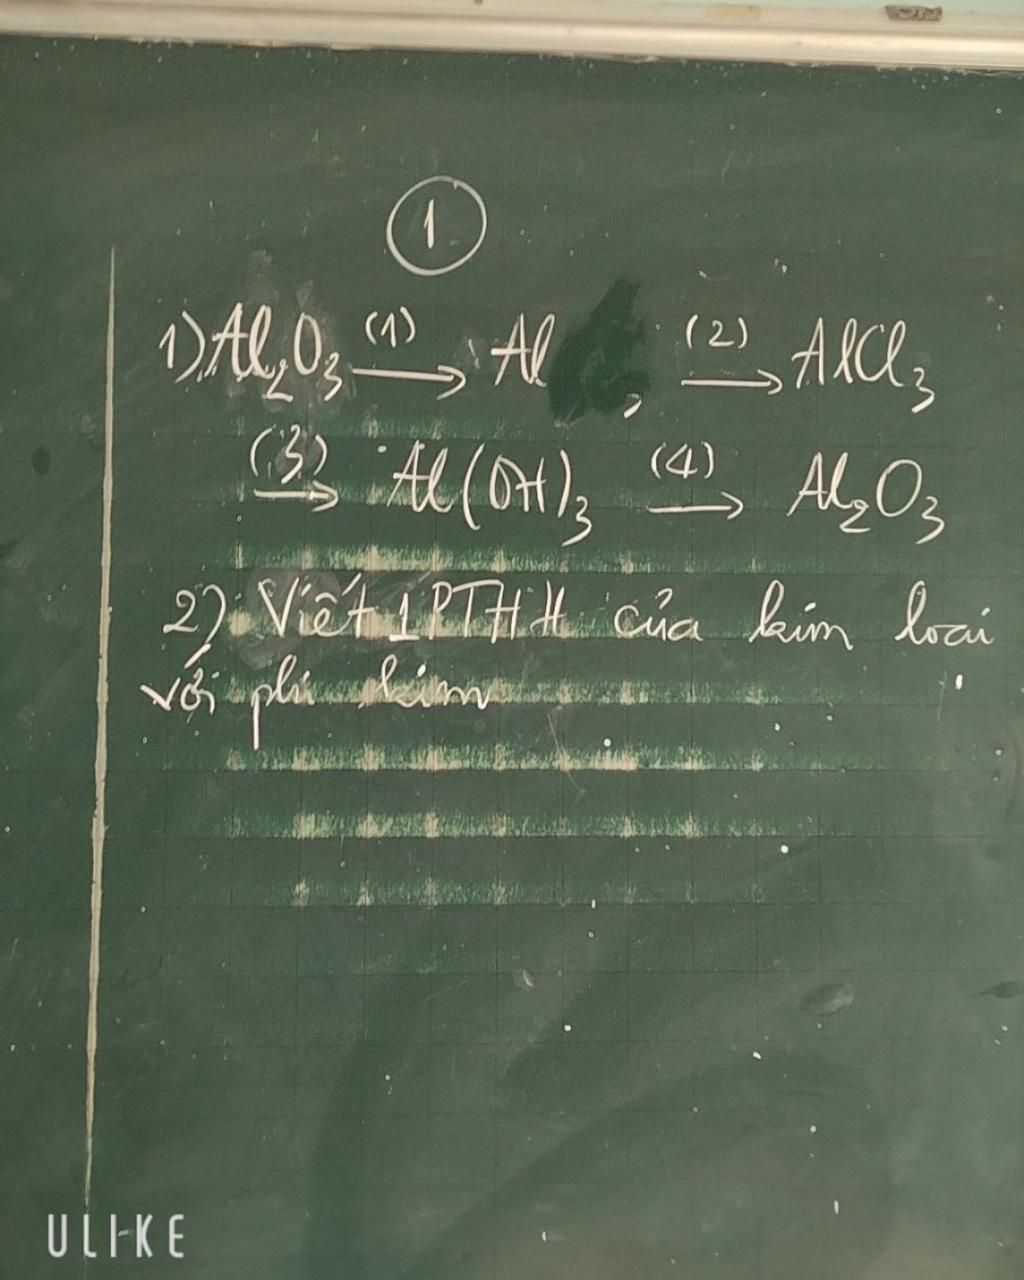 1
1) Al₂O₃ (1)→ Al , (2)→ AlCl₃
(3)→ Al(OH)₃ (4)→ Al₂O₃
2) Viết 1 PTHH của kim loai
với phi kim
ULIKE